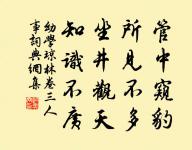 管中窺豹
所見不多
坐井觀天
知識不廣
幼學瓊林卷三人
事詞典網集